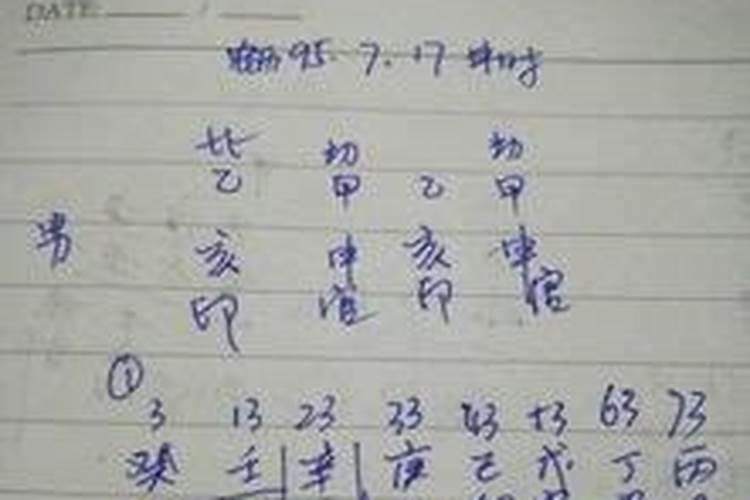 DATE: /
95.7.17 申时
比 劫 劫
乙 甲 乙 甲
男 亥 申 亥 申
印 官 印 官
①
3 13 23 33 43 53 63 73
癸 壬 辛 庚 己 戊 丁 丙